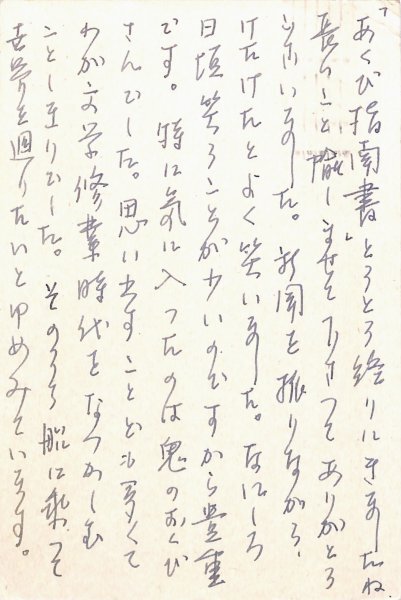 「あくび指南書」とうとう終りにきましたね
長らく楽しませて下さってありがとう
ございました。新聞を振りながら、
けたけたとよく笑いました。なにしろ
日頃笑うことが少いのですから貴重
です。特に気に入ったのは鬼のあくび
さんでした。思い出すことども多くて
わが文学修業時代をなつかしむ
ことしきりでした。そのうち船に乗って
世界を廻りたいとゆめみています。